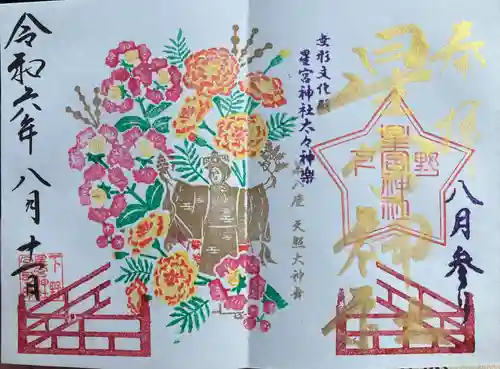 奉拝
星宮神社
八月参り
下野
星宮神社
女形文化殿
星宮神社太々神楽
天照大神舞
令和六年八月十一日